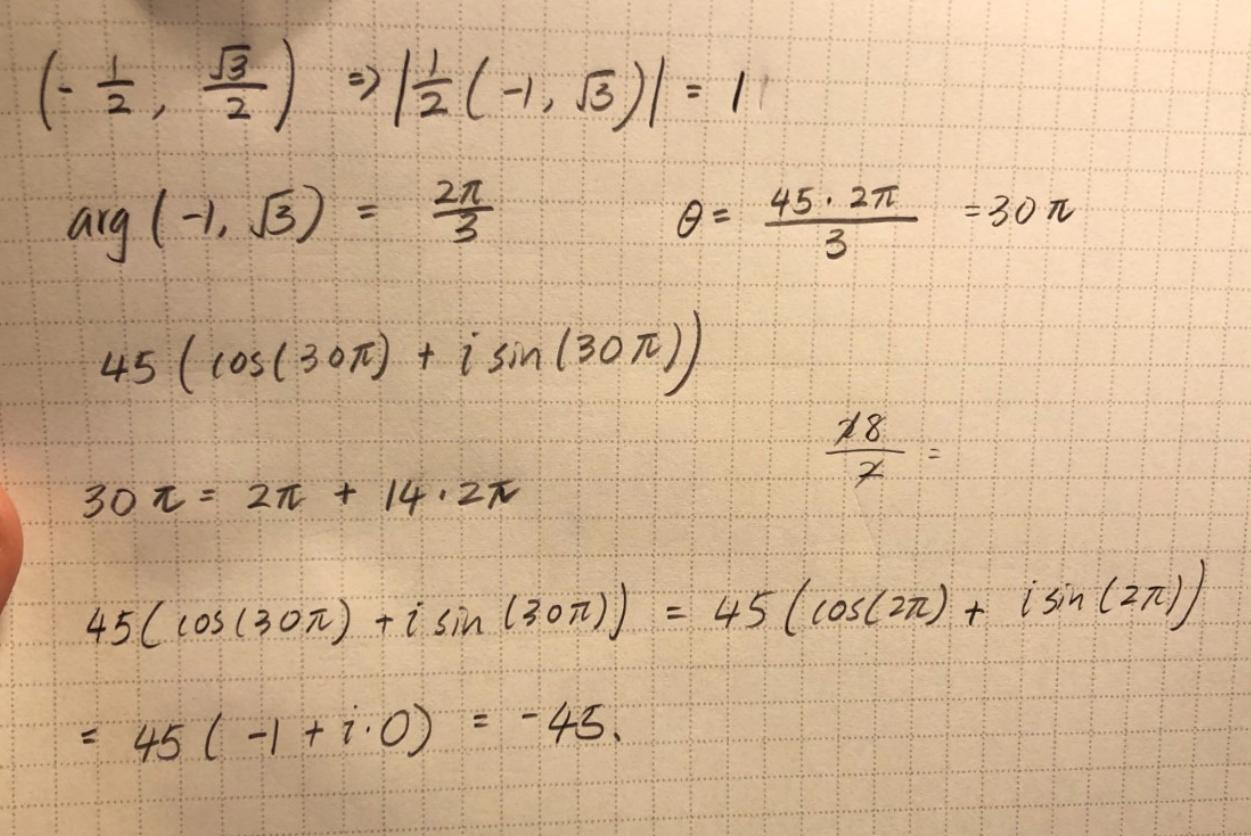 (-1/2, √3/2) ⇒ |1/2(-1, √3)| = 1
arg(-1, √3) = 2π/3    θ = 45·2π/3 = 30π
45(cos(30π) + i sin(30π))
28/2 =
30π = 2π + 14·2π
45(cos(30π) + i sin(30π)) = 45(cos(2π) + i sin(2π))
= 45(-1 + i·0) = -45.